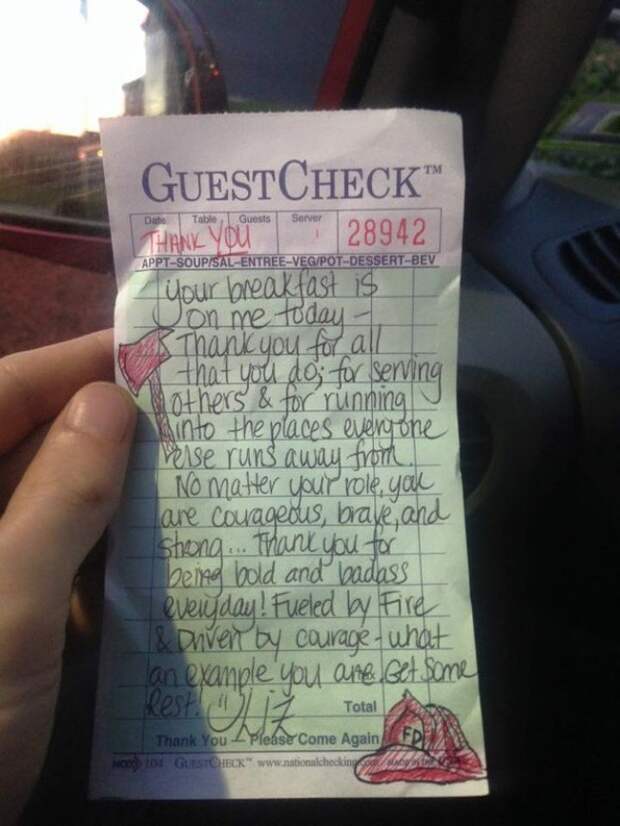 GUESTCHECK™
Date Table Guests Server
THANK YOU 28942
APPT-SOUP/SAL-ENTREE-VEG/POT-DESSERT-BEV
your breakfast is
on me today -
Thank you for all
that you do; for serving
others & for running
into the places everyone
else runs away from.
No matter your role, you
are courageous, brave, and
strong... Thank you for
being bold and badass
everyday! Fueled by Fire
& Driven by courage - what
an example you are. Get Some
Rest. Liz
Total
Thank You - Please Come Again
FD
104 GUESTCHECK™ www.nationalchecking.com